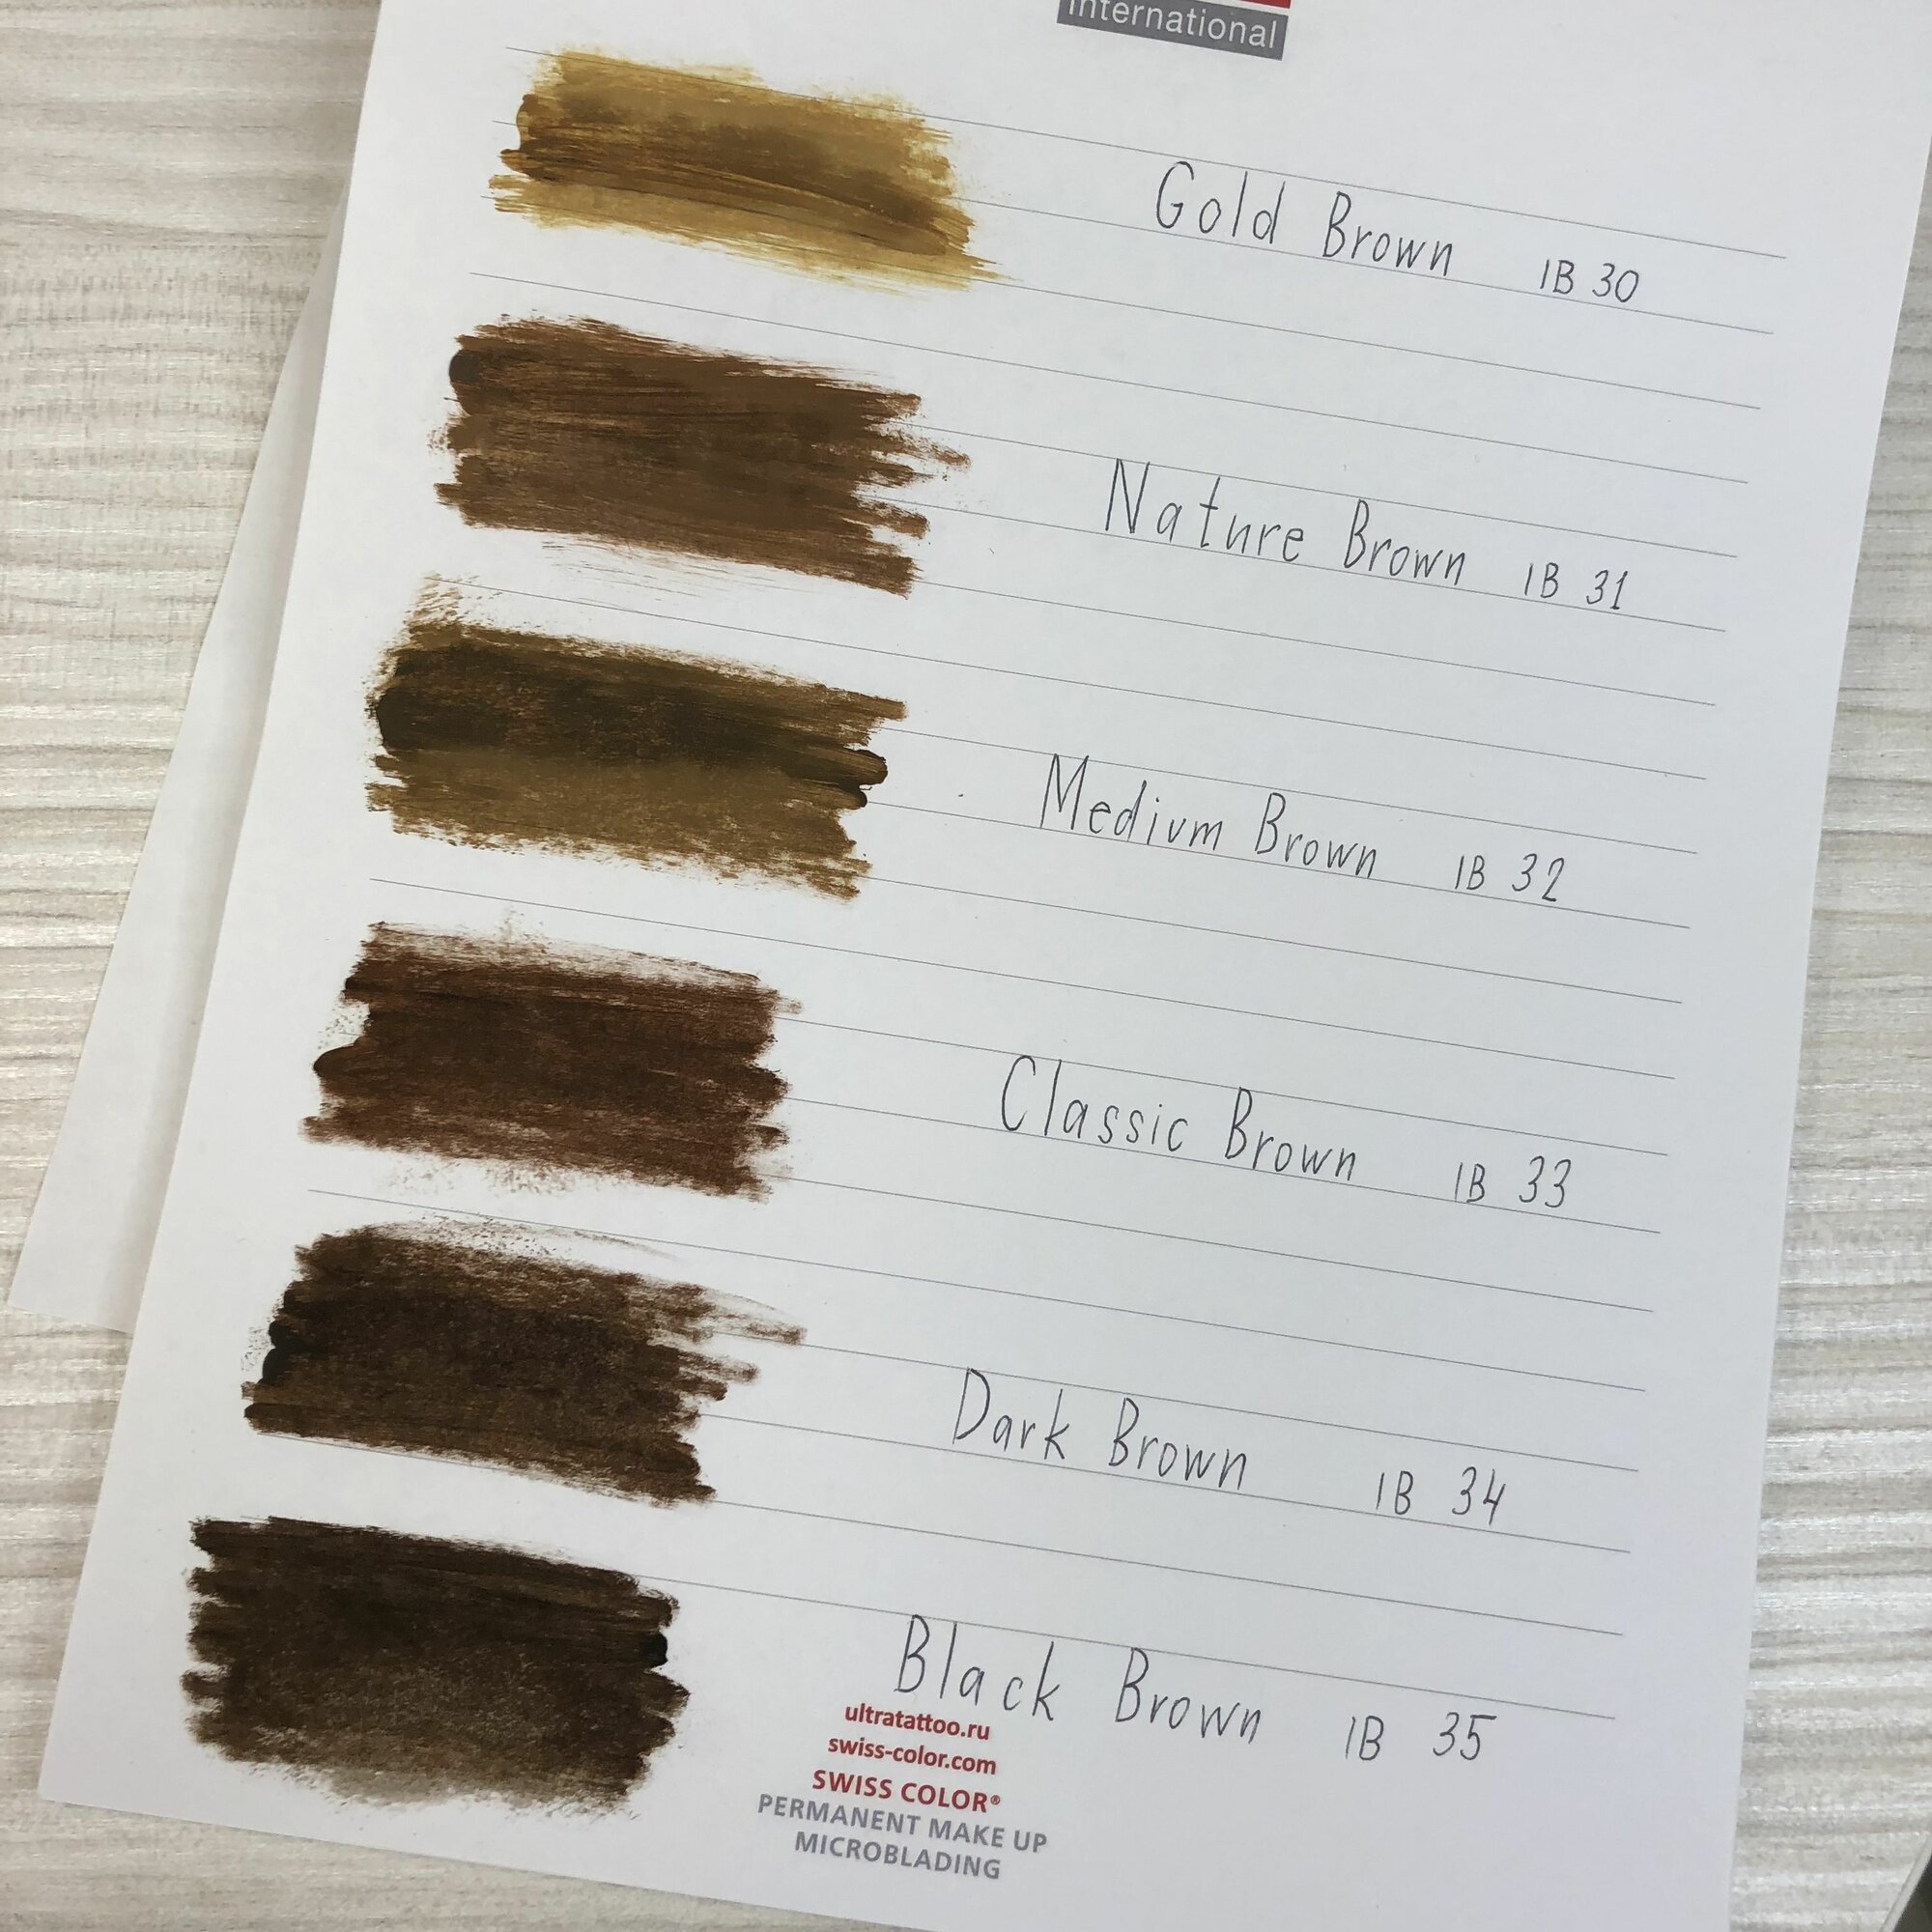 International
Gold Brown IB 30
Nature Brown IB 31
Medium Brown IB 32
Classic Brown IB 33
Dark Brown IB 34
Black Brown IB 35
ultratattoo.ru
swiss-color.com
SWISS COLOR®
PERMANENT MAKE UP
MICROBLADING